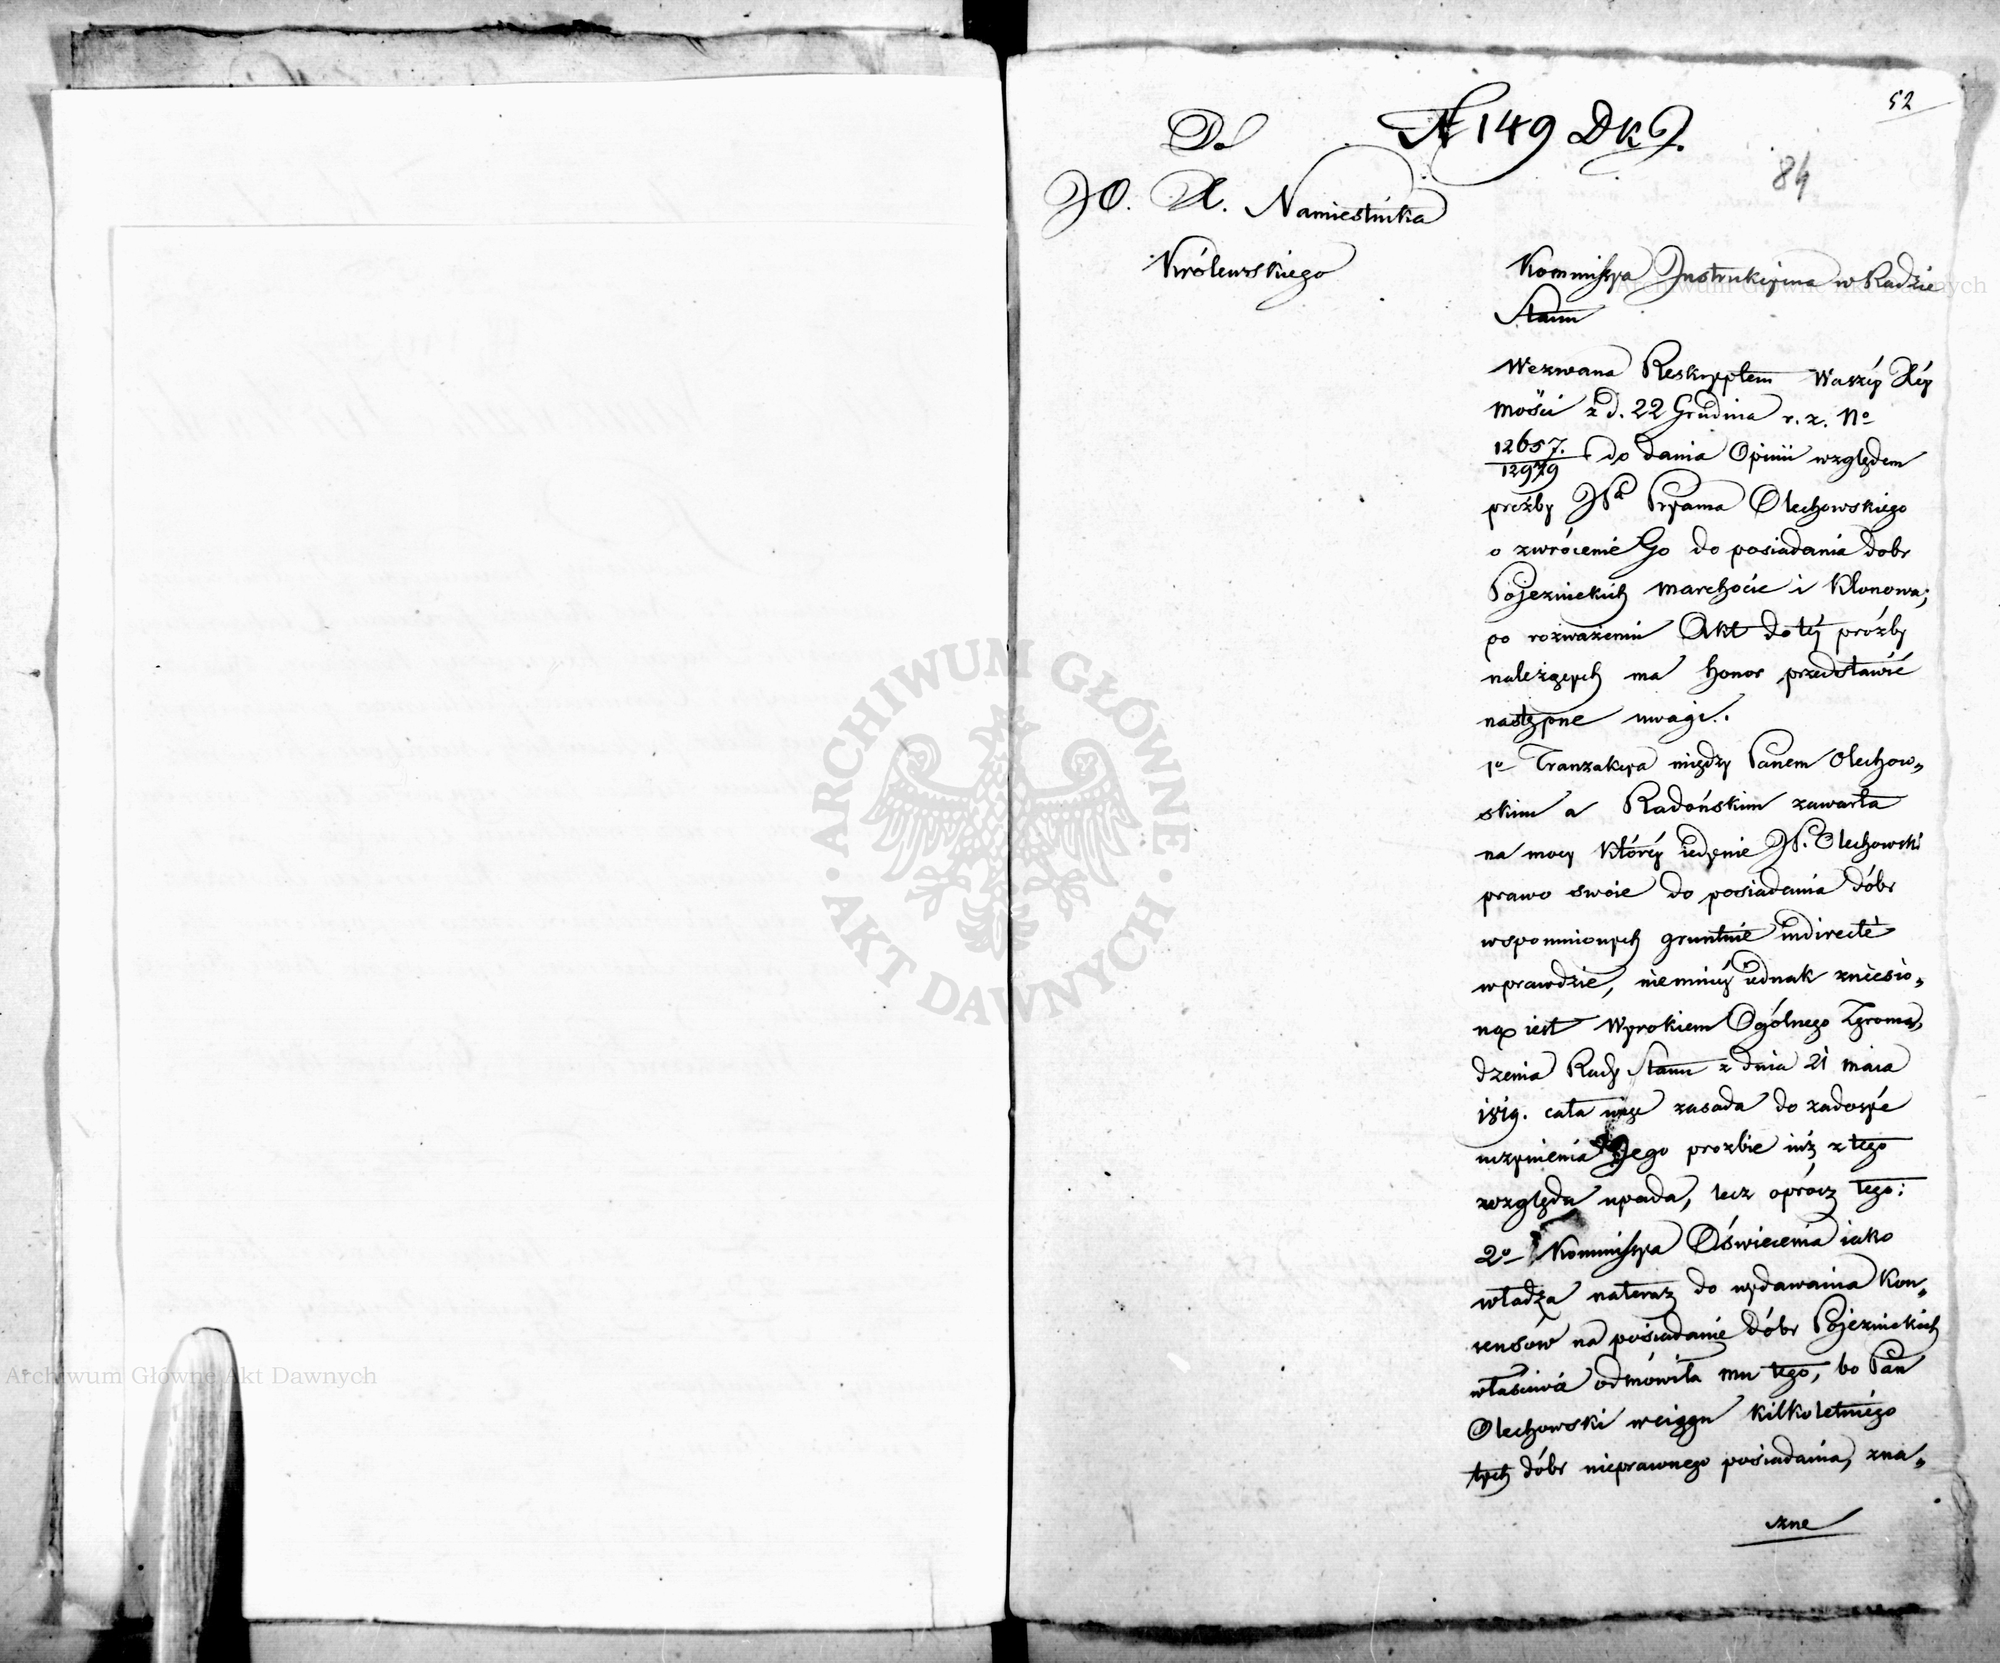 52
Do
№ 149 DKJ.
84
JO. X. Namiestnika
Królewskiego
Kommissya Instrukcyina w Radzie
Stanu
Wezwana Reskryptem Waszéy Xcéy
Mości z d. 22 Grudnia r. z. No
12657./12979 do dania Opinii względem
prozby JPa Pryama Olechowskiego
o zwrócenie Go do posiadania dobr
Pojezuickich Marchocie i Klonowa;
po rozważeniu Akt do téy prózby
należących ma honor przedstawić
następne uwagi.
1o Tranzakcya między Panem Olechow„
skim a Radońskim zawarta
na mocy któréy iedynie JP. Olechowski
prawo swoie do posiadania dóbr
wspomnionych gruntuie indirecte
wprawdzie, niemniéy iednak zniesio„
ną iest Wyrokiem Ogólnego Zgroma„
dzenia Rady Stanu z dnia 21 maia
1819. cała więc zasada do zadosyć
uczynienia Jego prozbie iuż z tego
względu upada, lecz oprócz tego:
2o Kommissya Oświecenia iako
władza nateraz do wydawania Kon„
sensów na posiadanie dóbr Pojezuickich
właściwa odmówiła mu tego, bo Pan
Olechowski wciągu kilkoletniégo
tych dóbr nieprawnego posiadania, zna„
czne
Archiwum Główne Akt Dawnych
Archiwum Główne Akt Dawnych
ARCHIWUM GŁÓWNE · AKT DAWNYCH ·